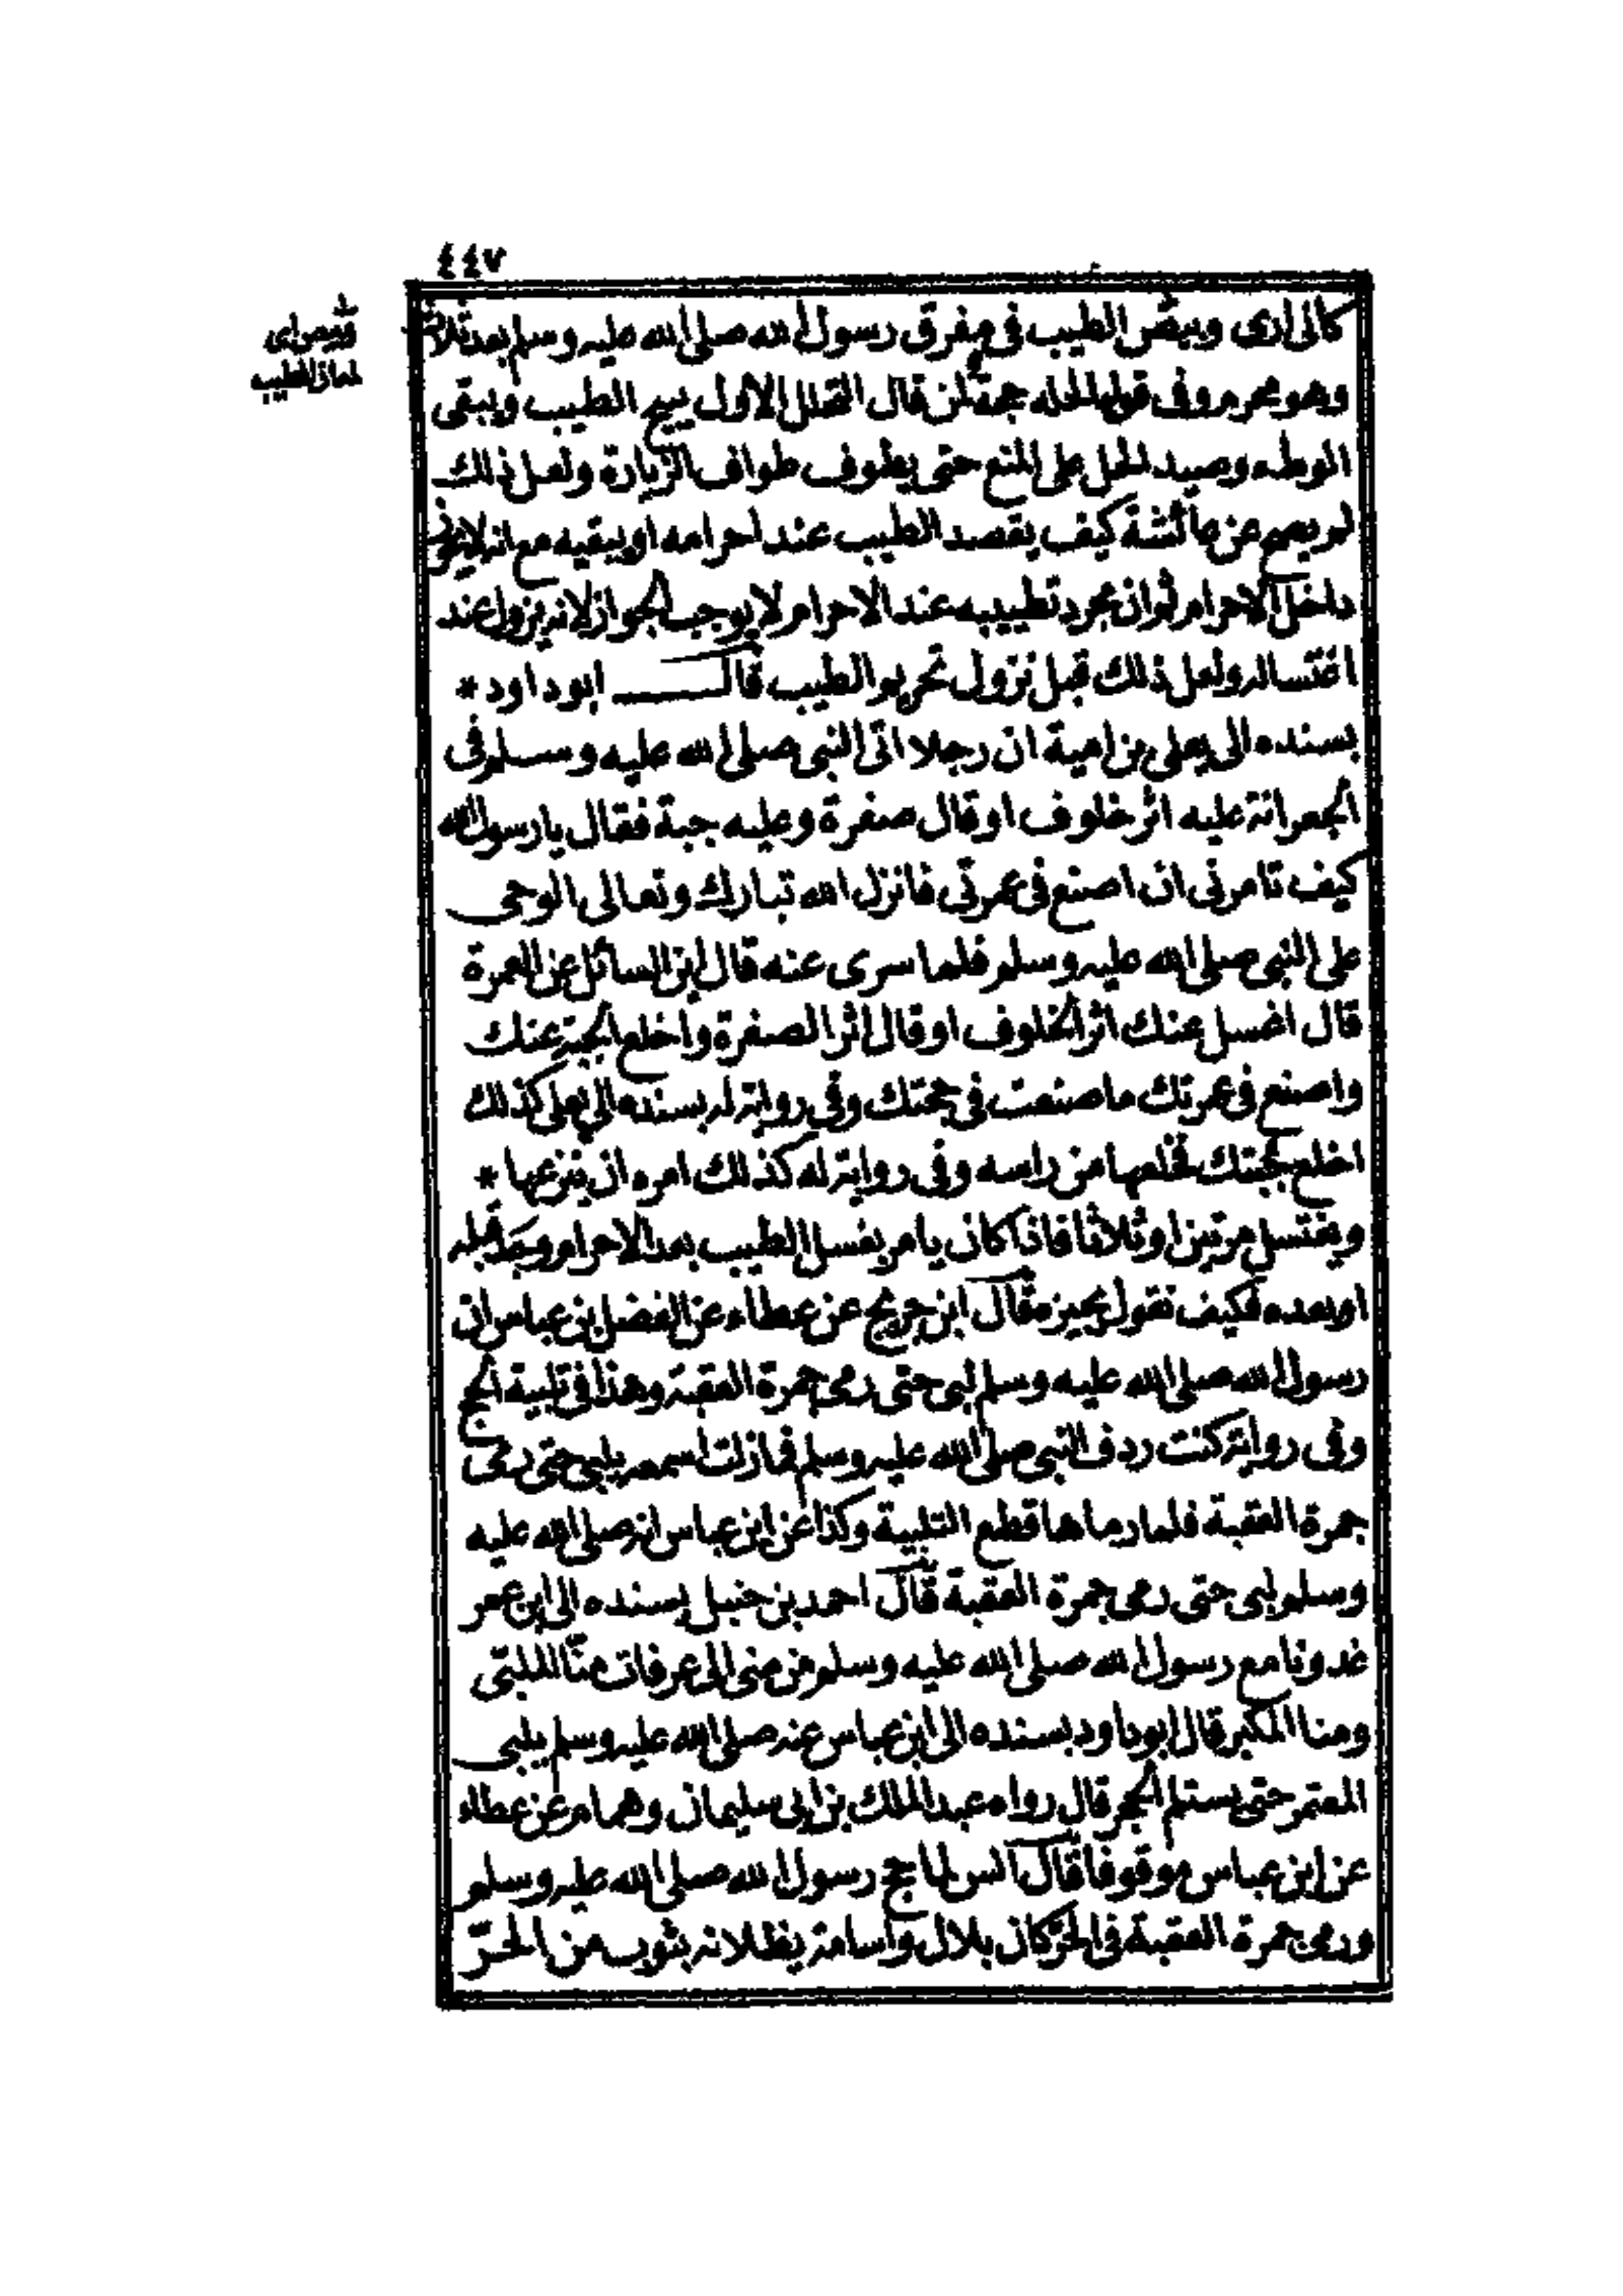 ٤٤٧
كانى ارى وبيص الطيب فى مفرق رسول الله صلى الله عليه وسلم بعد ثلاث
وبيص اى
لمعان الطيب
وهو محرم وفى قولها لحله حجة لمن قال التحلل الاول يبيح الطيب ويبقى
الوطء وصيد الحل على المنع حتى يطوف طواف الزيارة ولعل ذلك
لم يصح عن عائشة كيف يقصد الطيب عند احرامه او يبقيه مع انه لا يجوز
داخل الاحرام ثم ان مجرد تطييبه عند الاحرام لا يوجب الجواز لانه يزول عند
اغتساله ولعل ذلك قبل نزول تحريم الطيب قال ابو داود *
بسنده الى يعلى بن امية ان رجلا اتى النبى صلى الله عليه وسلم فى
الجعرانة عليه اثر خلوف او قال صفرة وعليه جبة فقال يا رسول الله
كيف تامرنى ان اصنع فى عمرتى فانزل الله تبارك وتعالى الوحى
على النبى صلى الله عليه وسلم فلما سرى عنه قال اين السائل عن العمرة
قال اغسل عنك اثر الخلوف او قال اثر الصفرة واخلع الجبة عنك
واصنع فى عمرتك ما صنعت فى حجتك وفى رواية له بسنده الى يعلى كذلك
اخلع جبتك فخلعها من راسه وفى رواية له كذلك امره ان ينزعها *
ويغتسل مرتين او ثلاثا فاذا كان يامر بغسل الطيب بعد الاحرام وجد قبله
او بعده فكيف تقول يجيزه قال ابن جريج عن عطاء عن الفضل بن عباس ان
رسول الله صلى الله عليه وسلم لبى حتى رمى جمرة العقبة وهذا فى تلبية الحج
وفى رواية كنت ردف النبى صلى الله عليه وسلم فما زلت اسمعه يلبى حتى رمى
جمرة العقبة فلما رماها قطع التلبية وكذا عن ابن عباس انه صلى الله عليه
وسلم لبى حتى رمى جمرة العقبة قال احمد بن حنبل بسنده الى ابن عمر
غدونا مع رسول الله صلى الله عليه وسلم من منى الى عرفات منا الملبّى
ومنا المكبر قال ابو داود بسنده الى ابن عباس عنه صلى الله عليه وسلم يلبى
المعتمر حتى يستلم الحجر قال رواه عبد الملك بن ابى سليمان وهمام عن عطاء
عن ابن عباس موقوفا قال انس لما حج رسول الله صلى الله عليه وسلم
ورمى جمرة العقبة فى الحرّ كان بلال واسامة يظلانه بثوب من الحرّ